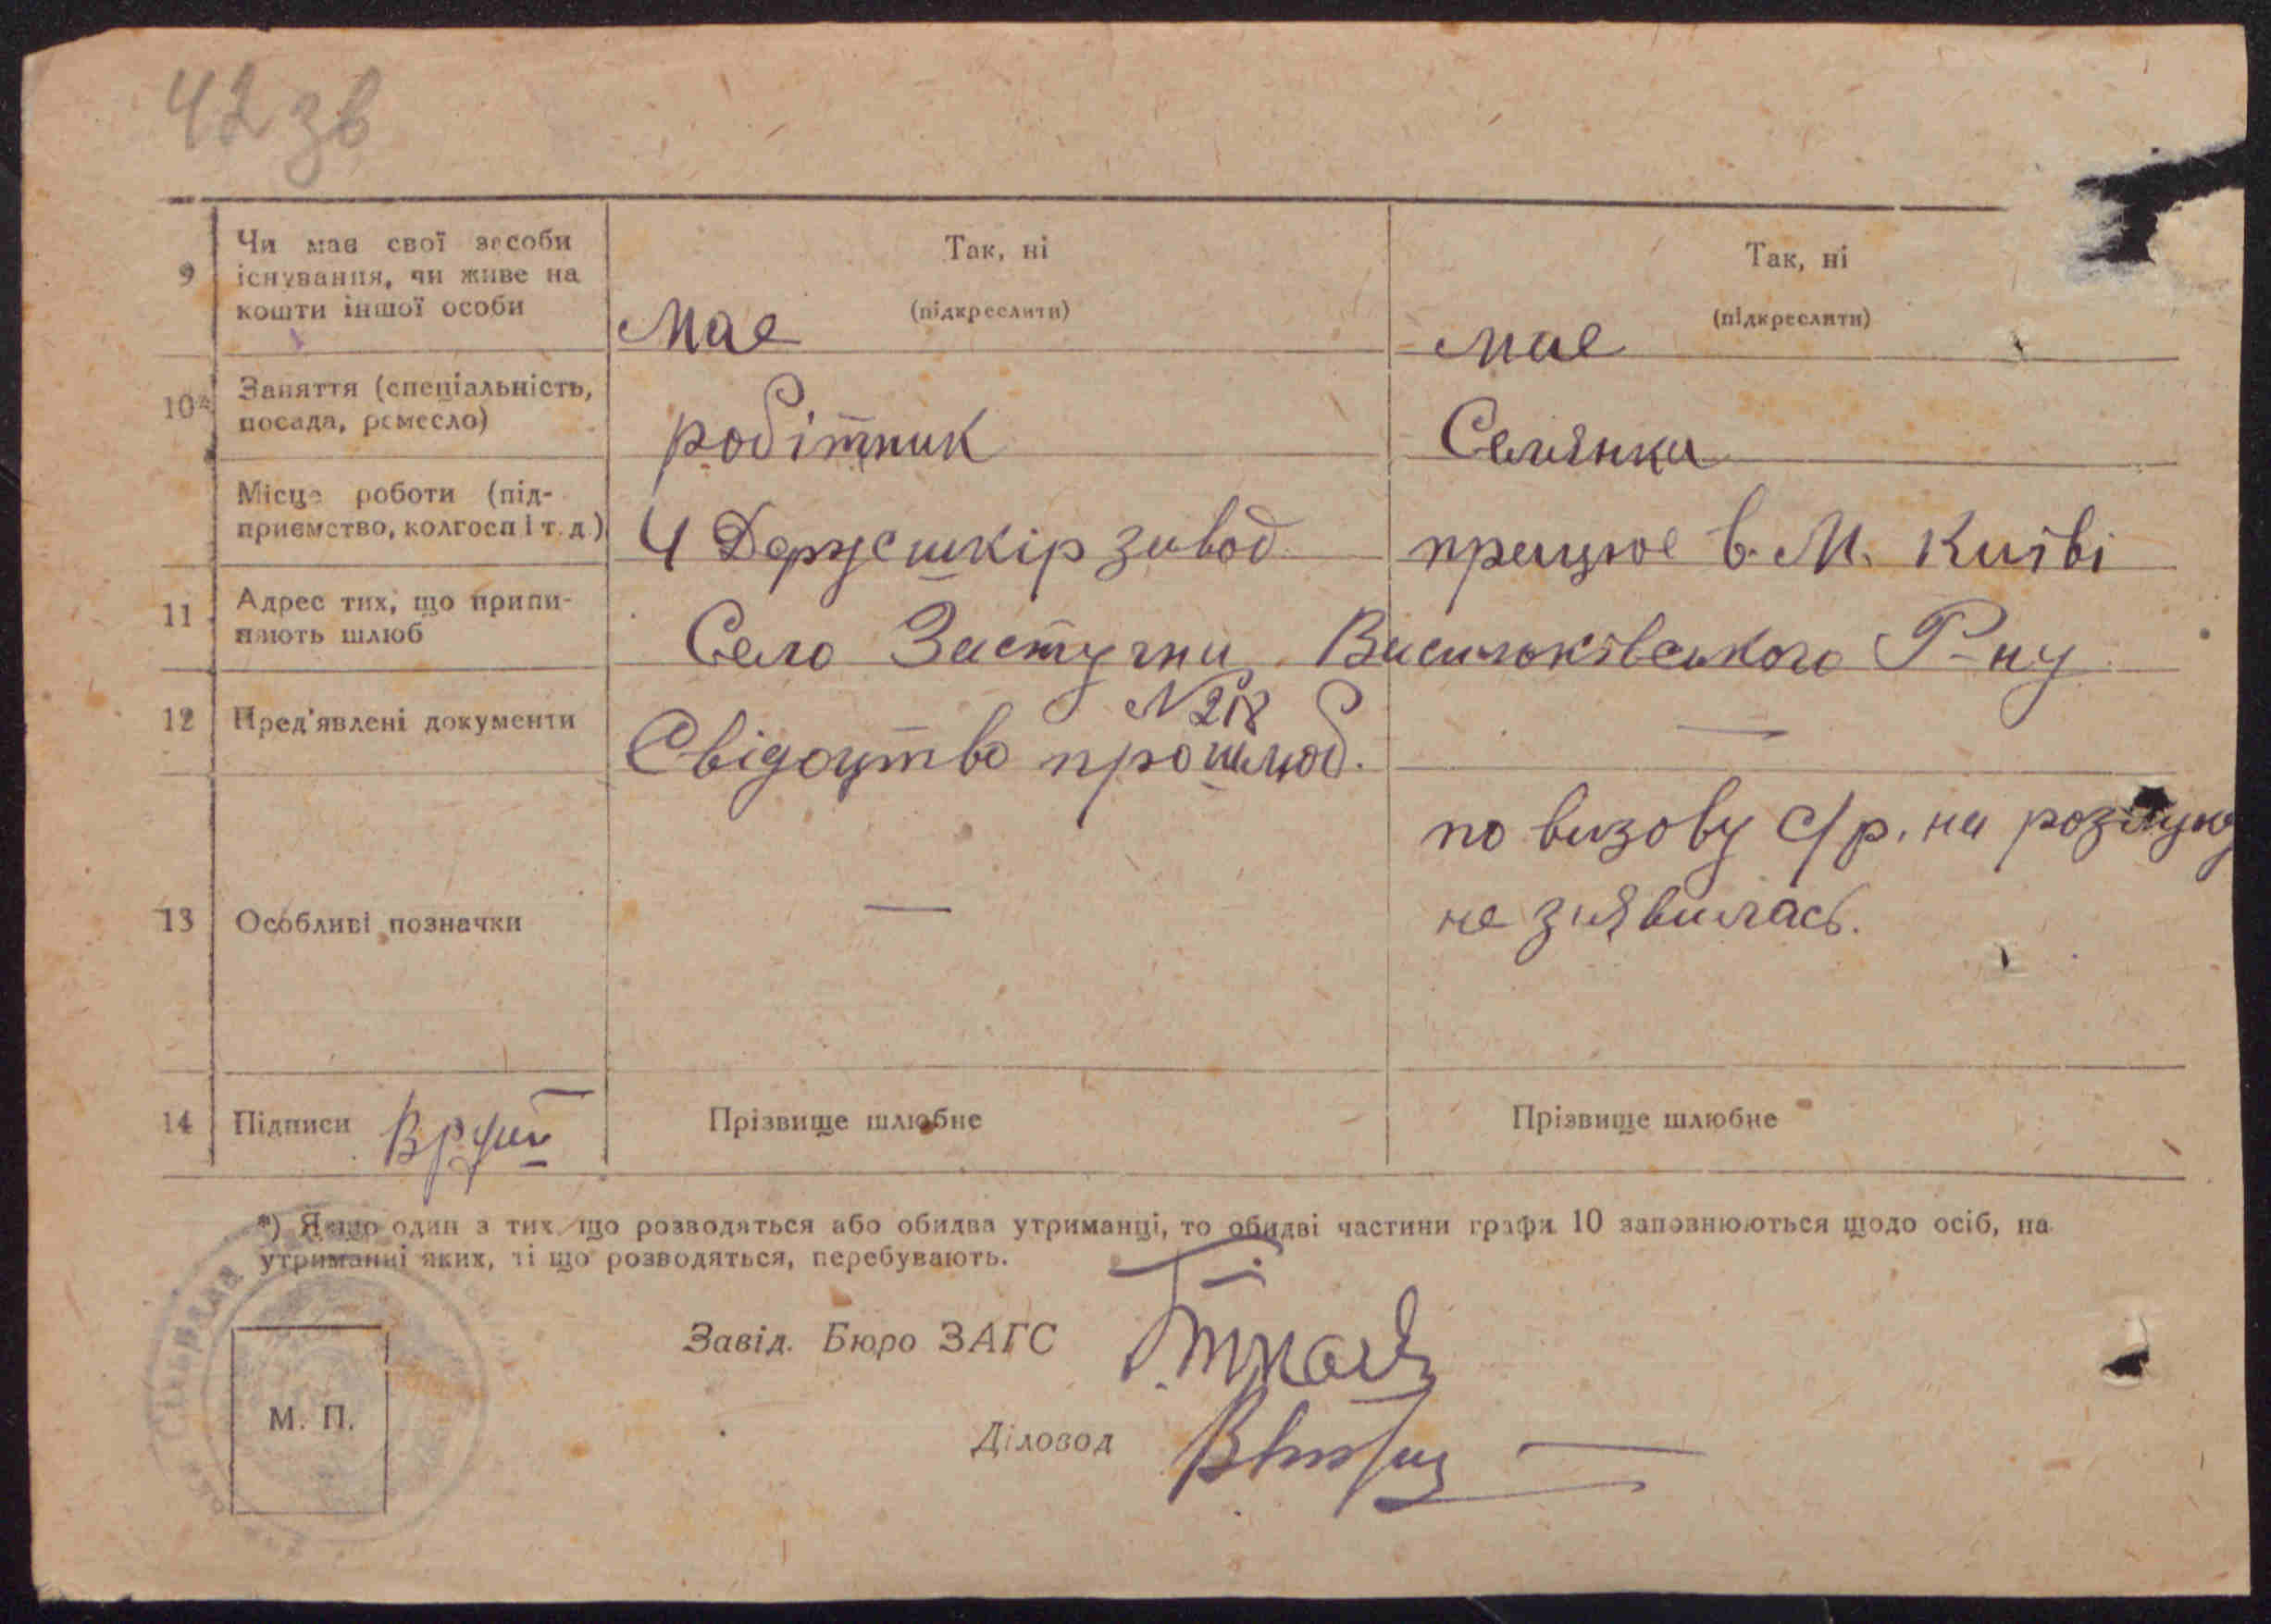 42 зв
9 Чи має свої засоби існування, чи живе на кошти іншої особи
Так, ні
(підкреслити)
Має
Так, ні
(підкреслити)
має
10* Заняття (спеціальність, посада, ремесло)
робітник
Селянка
Місце роботи (підприємство, колгосп і т. д.)
4 завод
працює в. М. Київі
11 Адрес тих, що припиняють шлюб
Село Застугни Васильківського Р-ну
12 Пред'явлені документи
№ 218
Свідоцтво про шлюб.
—
13 Особливі позначки
—
по визову с/р. на
не зявилась.
14 Підписи
Прізвище шлюбне
Прізвище шлюбне
*) Якщо один з тих що розводяться або обидва утриманці, то обидві частини графи 10 заповнюються щодо осіб, на
утриманні яких, ті що розводяться, перебувають.
Завід. Бюро ЗАГС
Діловод
М. П.